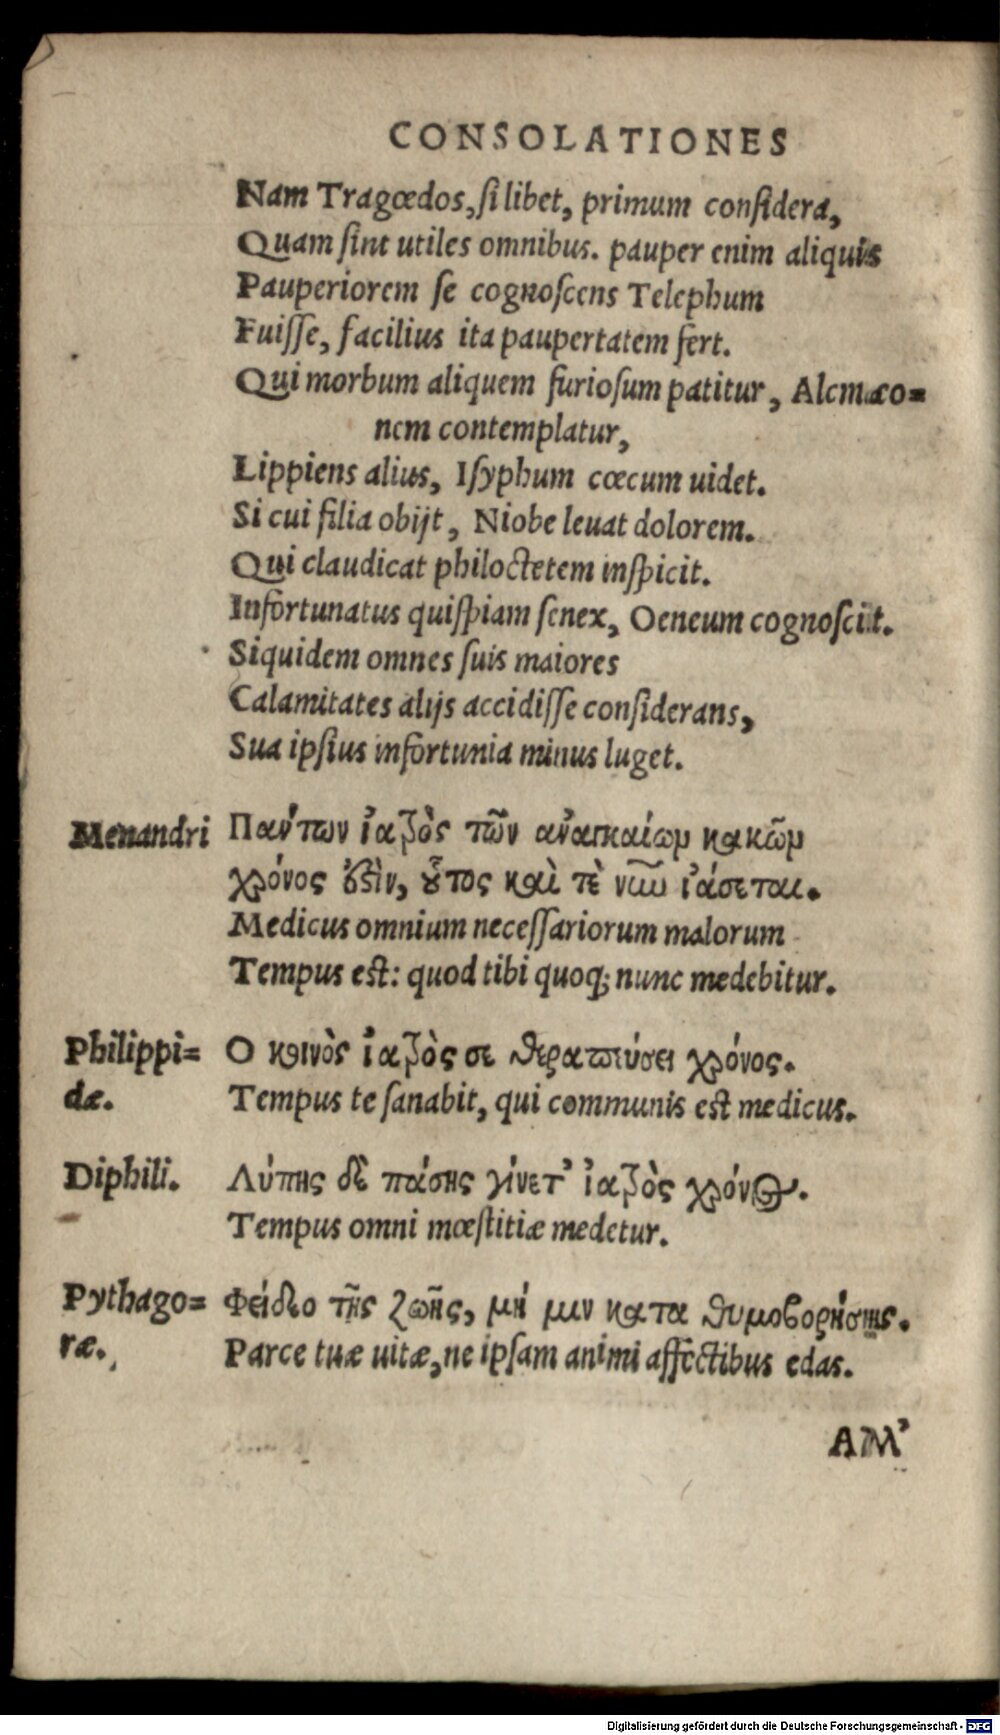 CONSOLATIONES
Nam Tragœdos, si libet, primum considera,
Quam sint utiles omnibus. pauper enim aliquis
Pauperiorem se cognoscens Telephum
Fuisse, facilius ita paupertatem fert.
Qui morbum aliquem furiosum patitur, Alcmæo=
nem contemplatur,
Lippiens alius, Isyphum cœcum uidet.
Si cui filia obijt, Niobe leuat dolorem.
Qui claudicat philoctetem inspicit.
Infortunatus quispiam senex, Oeneum cognoscit.
Siquidem omnes suis maiores
Calamitates alijs accidisse considerans,
Sua ipsius infortunia minus luget.
Menandri Παντων ἰατρὸς τῶν ἀναγκαίων κακῶν
χρόνος ὅστὶν, οὗτος καὶ τὲ νῦν ἰάσεται.
Medicus omnium necessariorum malorum
Tempus est: quod tibi quoq; nunc medebitur.
Philippi= Ο κοινὸς ἰατρὸς σε θεραπεύσει χρόνος.
dæ. Tempus te sanabit, qui communis est medicus.
Diphili. Λύπης δὲ πάσης γίνετ' ἰατρὸς χρόνος.
Tempus omni mœstitiæ medetur.
Pythago= Φείδεο τῆς ζωῆς, μή μιν κατα θυμοβορήσῃς.
ræ. Parce tuæ uitæ, ne ipsam animi affectibus edas.
ΑΜ'
Digitalisierung gefördert durch die Deutsche Forschungsgemeinschaft - DFG